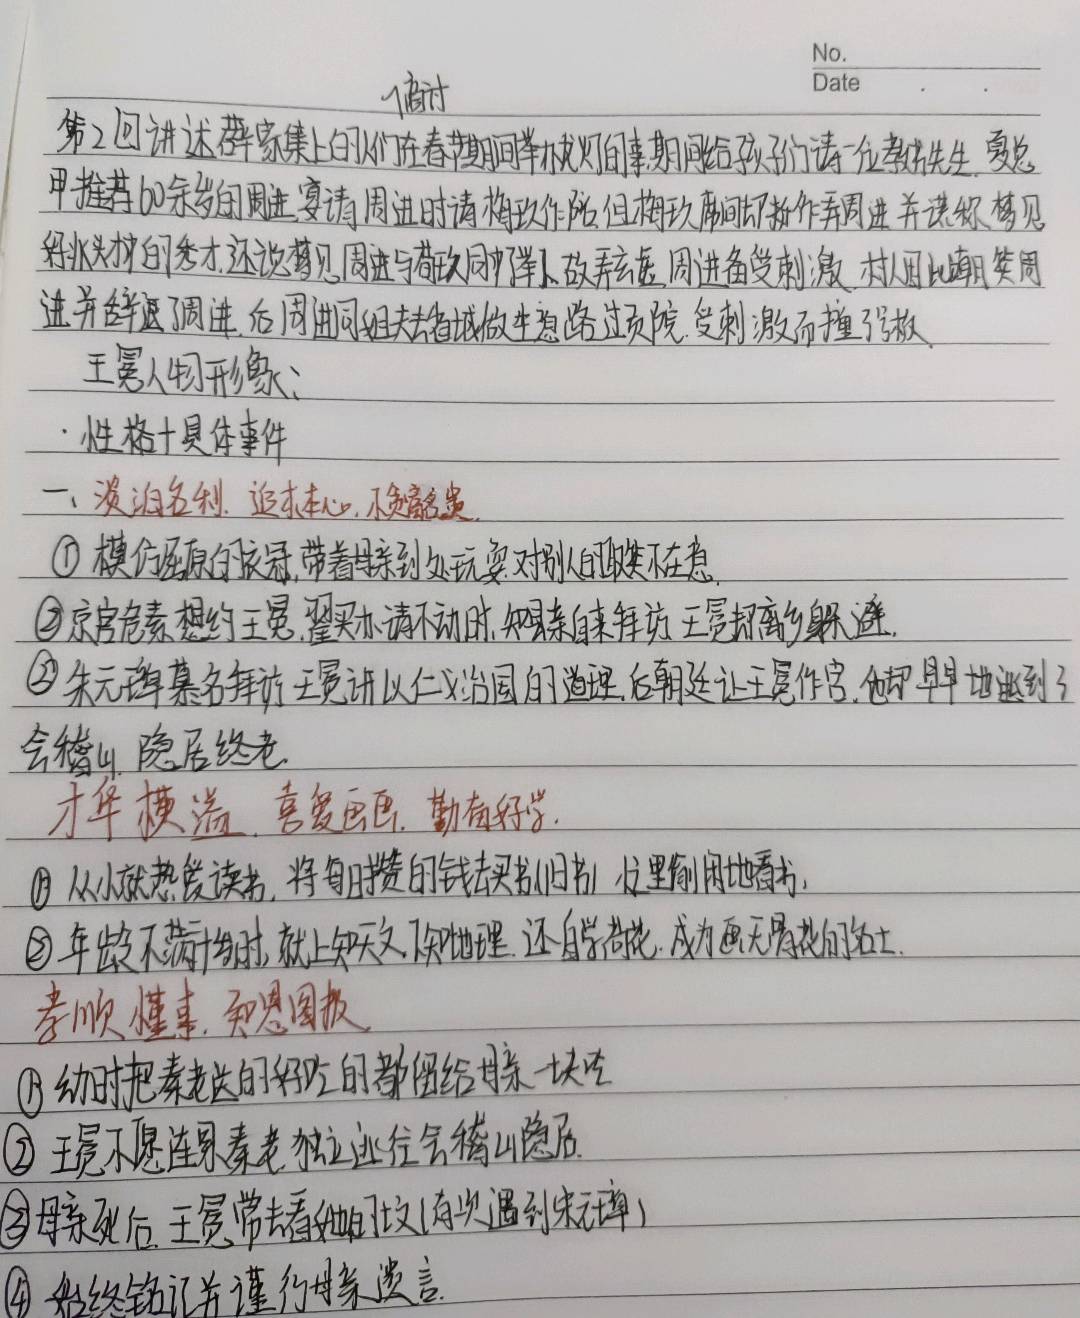 No.
Date
商讨
第2回讲述薛家集上的人们在春节期间举办龙灯的事,期间给孩子们请一位教书先生.夏总
甲推荐60余岁的周进,宴请周进时请梅玖作陪,但梅玖席间却捉弄周进,并谎称梦见
的秀才,还说梦见周进与荀玖同中举人,故弄玄虚,周进备受刺激,村人因此嘲笑周
进并辞退了周进.后周进同姐夫去省城做生意路过贡院.受刺激而撞了号板.
王冕人物形象:
·性格+具体事件
一、淡泊名利.追求本心,不贪富贵.
①模仿屈原的衣冠,带着母亲到处玩耍对别人的取笑不在意.
②京官危素想约王冕,翟买办请不动时,知县亲自来拜访,王冕却离乡躲避.
③朱元璋慕名拜访,王冕讲以仁义治国的道理.后朝廷让王冕作官,他却早早地逃到了
会稽山,隐居终老.
才华横溢.喜爱画画.勤奋好学.
①从小就热爱读书,将每日攒的钱去买书(旧书)忙里偷闲地看书,
②年龄不满十岁时,就上知天文,下知地理.还自学荷花.成为画无骨花的名士.
孝顺懂事.知恩图报
①幼时把秦老送的好吃的都留给母亲一块吃
②王冕不愿连累秦老,独立逃往会稽山隐居.
③母亲死后,王冕常去看她的坟(有次遇到朱元璋)
④始终铭记并谨行母亲遗言.